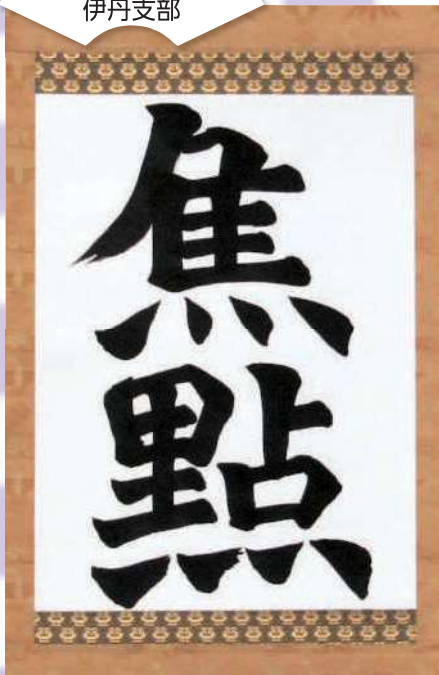 伊丹支部
焦
點